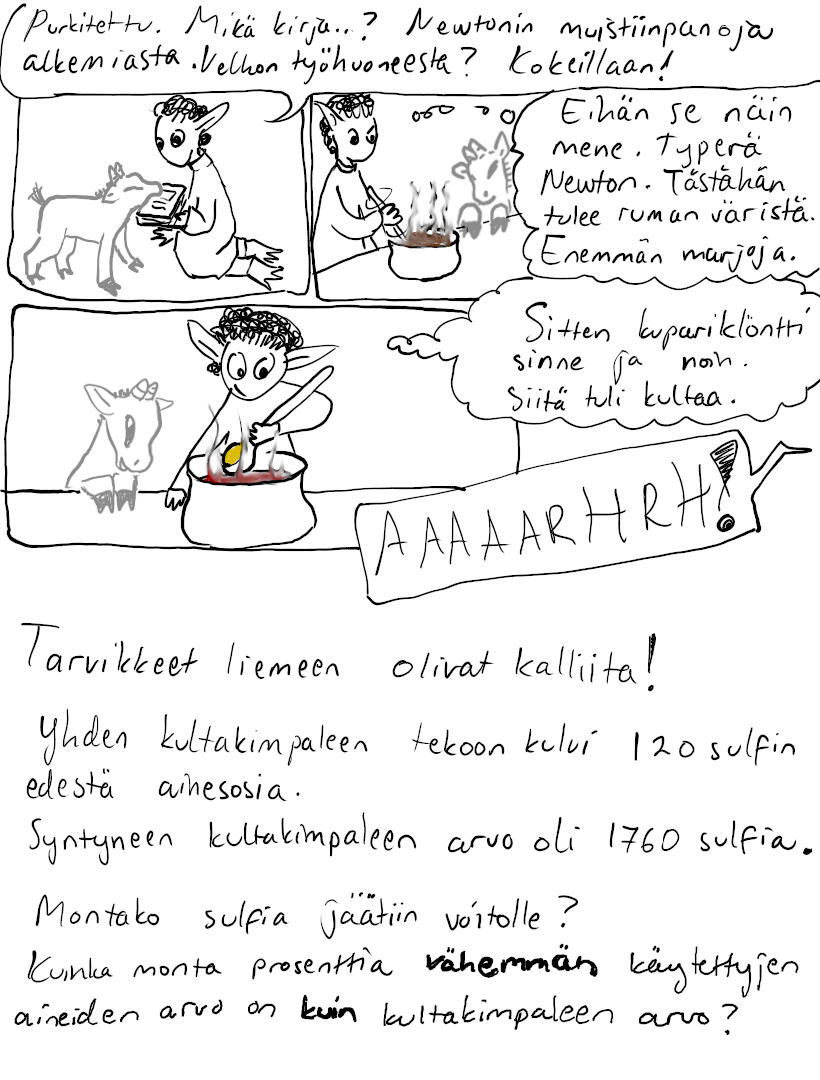 Purkitettu. Mikä kirja..? Newtonin muistiinpanoja
alkemiasta. Velhon työhuoneesta? Kokeillaan!
Eihän se näin
mene. Typerä
Newton. Tästähän
tulee ruman väristä.
Enemmän marjoja.
Sitten kupariklöntti
sinne ja noin.
Siitä tuli kultaa.
AAAAARHRH!
Tarvikkeet liemeen olivat kalliita!
Yhden kultakimpaleen tekoon kului 120 sulfin
edestä ainesosia.
Syntyneen kultakimpaleen arvo oli 1760 sulfia.
Montako sulfia jäätiin voitolle?
Kuinka monta prosenttia vähemmän käytettyjen
aineiden arvo on kuin kultakimpaleen arvo?